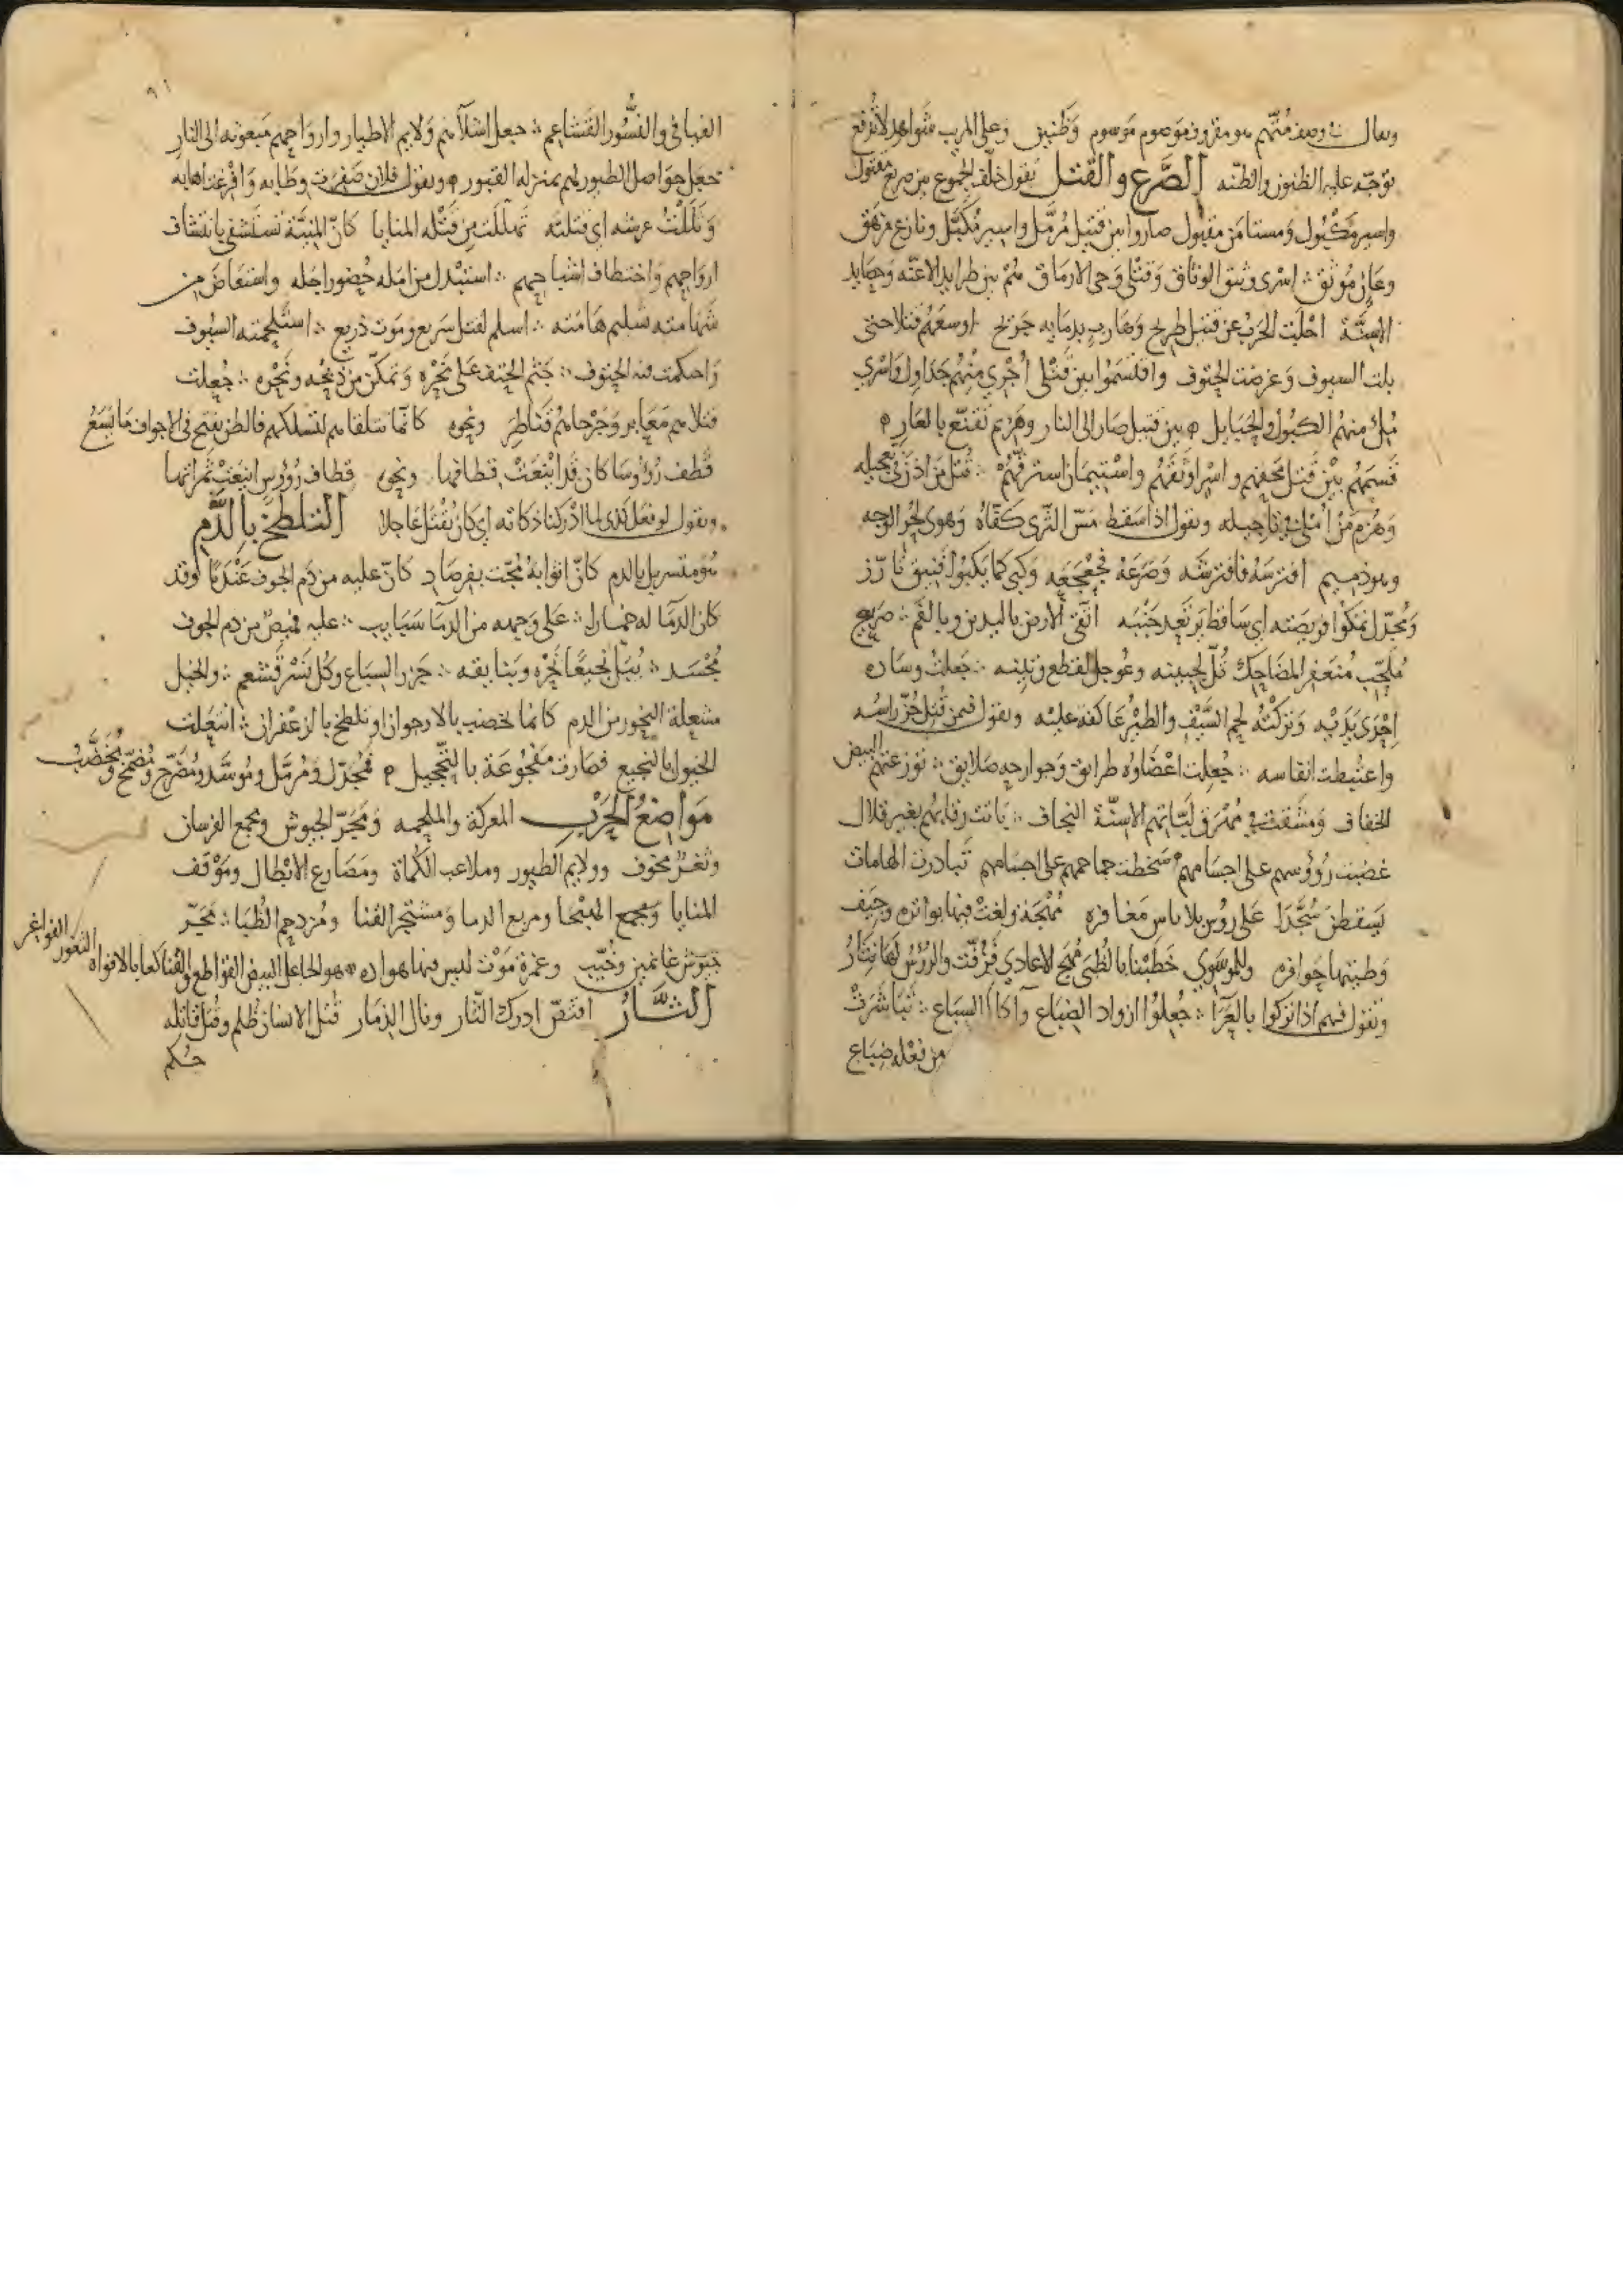 ويقال في وصف متهم هو مقروف موصوم موسوم وظنين وعلى المريب شواهد لا تُدفع
توجّه عليه الظنون والظنّه الصَّرع والقتل تقول خلّف الجموع بين صريع مقتول
واسير مكبول ومستامن مقبول صاروا بين قتيل مُرمَّل واسير مُكبَّل ونازع مرهق
وعانٍ مُوثق اسرى وثيق الوثاق وقتلى وحى الارماق هُمْ بين طرايد الاعنّه وحصايد
الاسنّة اجْلَت الحَرْبُ عن قتيل طريح وهارب بدمايه جريح اوسعهُم قتلا حتى
بلت السيوف وعرضت الحتوف واقتسموا بين قَتْلى أُجْرِي منهُم جداول واسرى
مُلئ منهُم الكبُول والحبايل بين قتيل صار الى النار وهزيم تقنّع بالعار
قسمهُم بَيْن قَتْل مجحفهم واسْر اوثقهُم واسْتيمان استرقّهُمْ قُتل من اذن في تعجيله
وهُزم مَنْ أُمْلى في تاجيله ويقول اذا سقط مَسّ الثرى كفّاهُ وهوى لحُرّ الوجه
وهو ذميم افترسَهُ فافترشه وصَرَعَهُ فجعجعَه وكبى كما يكبُو فنيق تارّز
ومُجدّل تمكوا فريصته اي ساقط ترتعد جنبَه اتّقى الارض باليدين وبالفم صريع
مُلحّب مُنعفر المضاحك تُلّ لجبينه وعُوجل لقطع وتينه جعلتُ وساده
اِحْدَى يَدَيْه وَتركْتُه لحم السَّيْفِ والطيْرُ عاكفة عليْه ويقول فيمن قُتِل حُزّ راسُه
واعتُبطت انفاسه جُعِلت اعْضَاوُه طرايق وجوارحه صَلايق توزعتهُم البيض
الخفاف ومشقت في مُهْرَق لبّاتهم الاسِنّة النحاف باتت رقابهُم بغير قلال
غضبت رُؤوسهم على اجسامهم سخطت جماجمهم على اجسامهم تبادرت الهامات
يَسقطنَ سُجَّدَا عَلى روْس بلا باس مغافره مُهْجَة ولغتْ فيها بواتره وجيَف
وطيتها حوافره وللموسَوي خَطَبْنا بالظُّبَى مُهَج الاعادي فَزُفّت والرُؤسُ لها نثارُ
وتقول فيهم اذا تُركوا بالعَرَا جُعلوا ازواد الضباع وآكال السباع تباشَرَتْ
من فعله ضباع
٩١
الفيافي والنُّسُور القشاعم جعل اشلآهم ولايم الاطيار وارواحهم مبعوثه الى النار
جعل حواصل الطيور لهم بمنزله القبور ويقول فلان صَفرت وطابه وافْرغت اهابه
وثللتُ عرشه اي قتلته تهلّلت من قَتْله المنايا كانّ المنيّة تستشفى بانتشاف
ارواحهم واختطاف اشباحهم استبْدل من امله حُضور اجله واستعاضَ من
شهامته تسليم هامته اسلم لقتل سَريع ومَوت ذَريع استلحمته السُيوف
واحكمت فيه الحتوف جثم الحتف على نَحْره وتمكّن من ذَبْحه ونَحْره جُعلت
قتلاهم معَابر وجَرْحاهُم قناطِر ونحوه كانّما تتلقاهم لتسلكهم فالطعن يفتح في الاجواف ما يَسَعُ
قطف رُؤوسا كان قد ايْنعَتْ قطافها ونحوه قطاف رُؤوس ايْنعَتْ ثمراتها
ويقول لو فعل كذى لما ادْركنا ذكاته اي كان يُقْتَل عاجلا التلطّخ بالدَّم
هُو متسربل بالدم كانّ اثوابهُ مُجّت بفرصاد كانّ عليه من دَم الجوف عَنْدَمًا وقد
كان الدمَا له خِمارا على وجهه من الدمَا سَبَايب عليه قميصٌ من دم الجوف
مُجْسَد يُبَلّ نجيعًا نَحْره وبنايقه جَزر السِبَاع وكُل نَسْر قشعم والخيل
مشعلة النحور من الدم كانما تخضب بالارجوان او تلطخ بالزعفران انتعلت
الخيول بالنجيع فصارت مفجُوعَة بالتحجيل مُجَدّل ومُرمَّل ومُوسَّد ومُضرّج ومُضمّخ ومُخَضَّبُ
مَواضعُ الحَرْب المعركة والملحمه ومَجَرّ الجيوش ومجمع الفرسان
وثغرٌ مخوف وولايم الطيور وملاعب الكُماة ومصارع الابْطال ومَوْقف
المنايا ومجمع الهيْجا ومربع الدما ومشتجر القنا ومُزدحم الظُبَا مَجَرّ
جيُوش غانمين وخُيّب وغمرة مَوْت ليس فيها هواده هو الجاعل البيض القواطع والقنا كعابا لافواه الثغور الفواغر
الثَّارُ اقتصّ ادرك الثار ونال الذمار قُتل الانسان ظُلم وقتل قاتله
حُكم